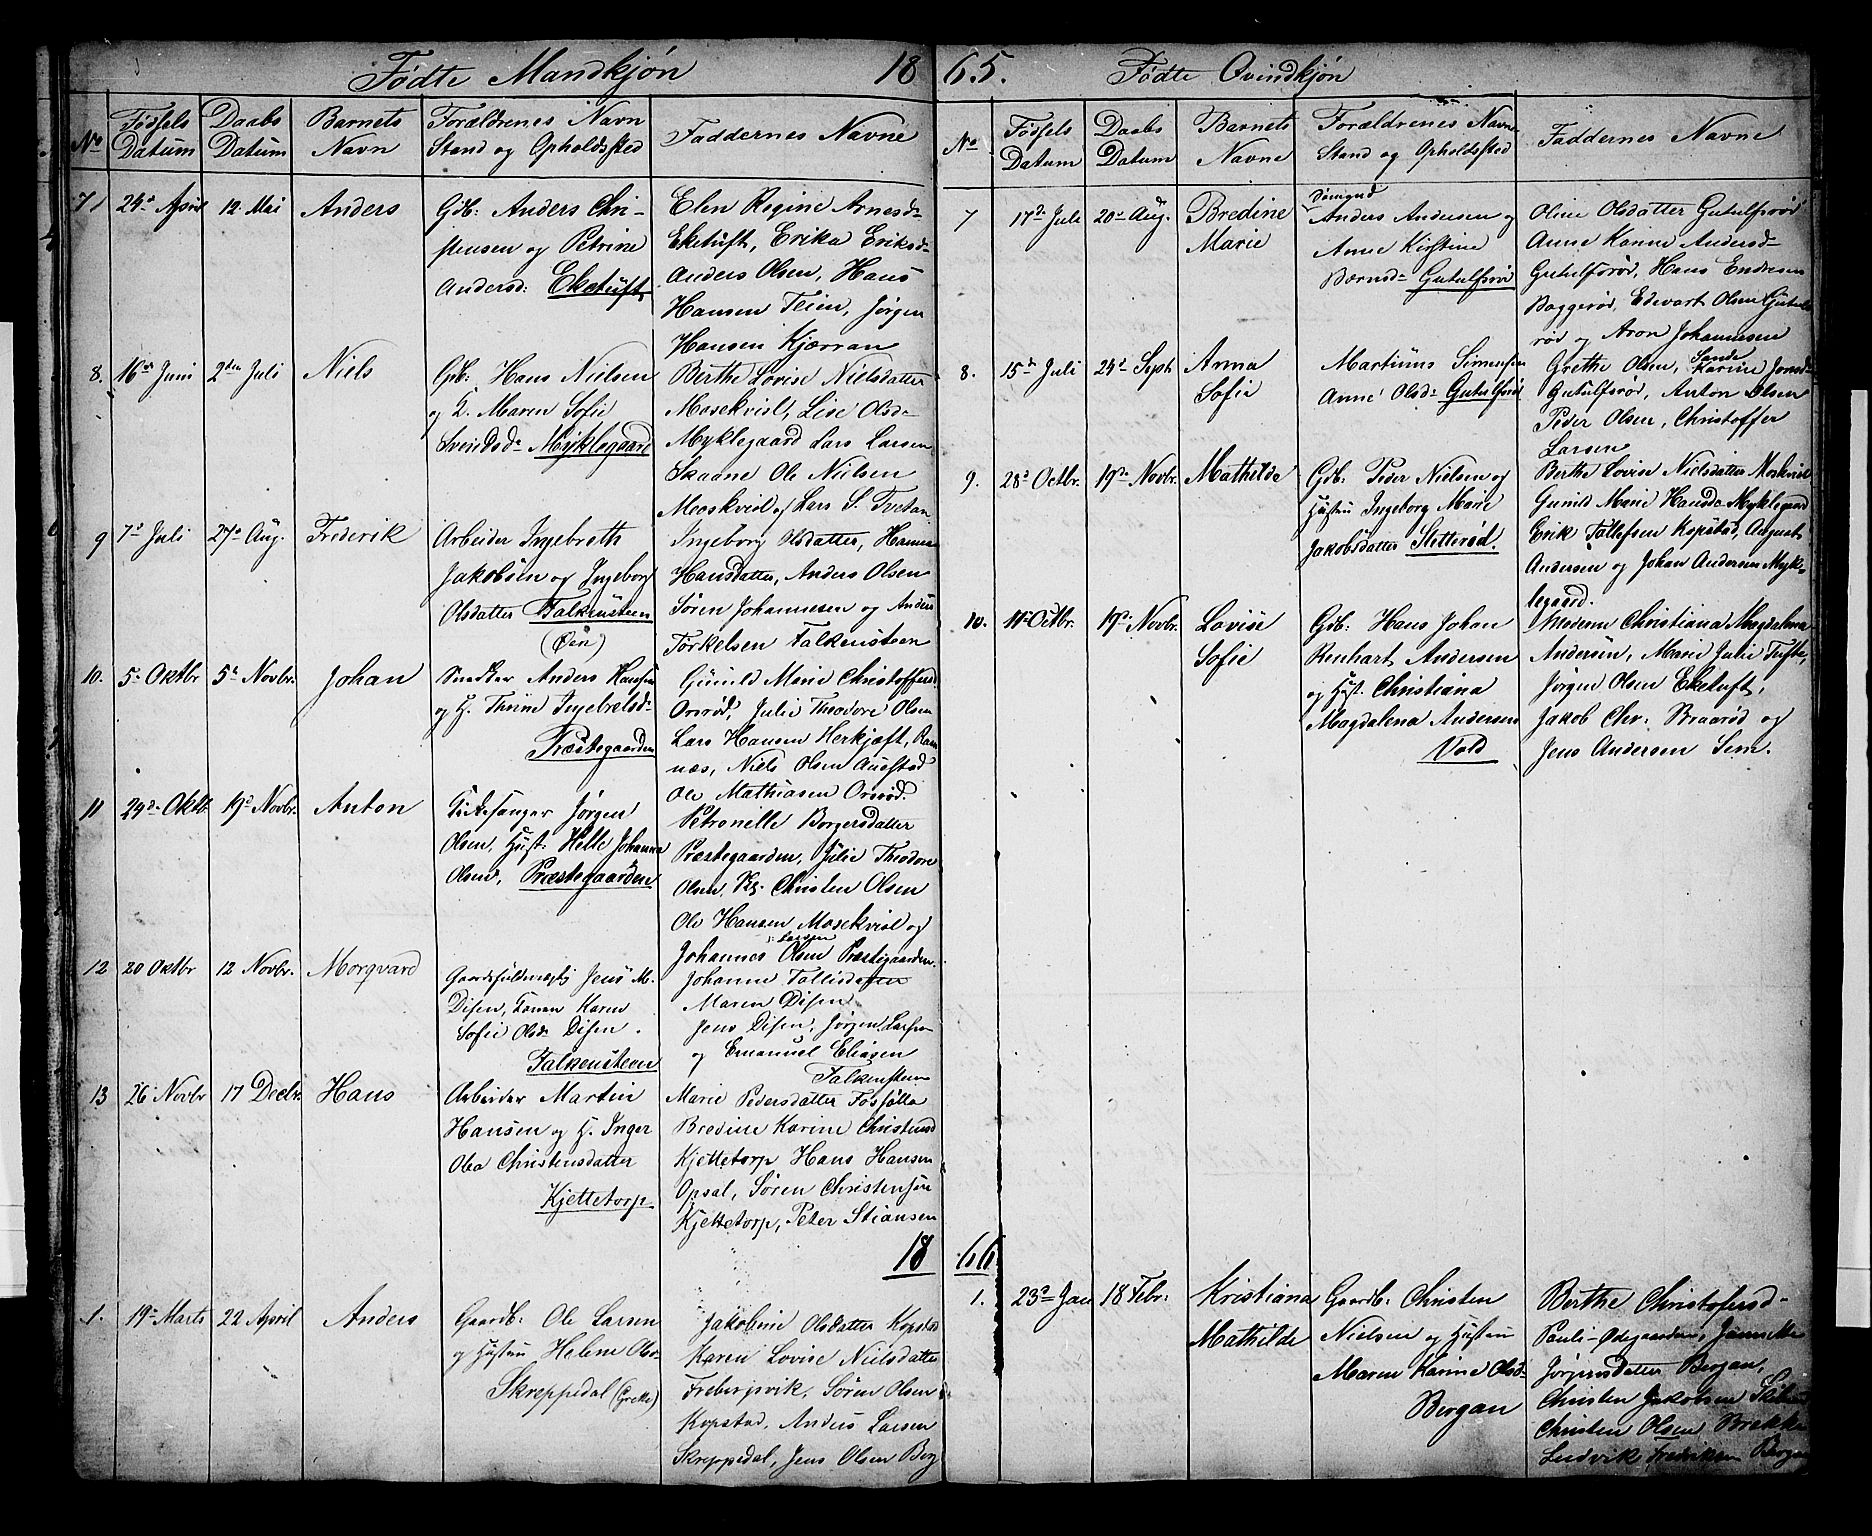 Fødte Mandkjøn 18
No
Fødsels Datum
Daabs Datum
Barnets Navn
Forældrenes Navn Stand og Opholdsted
Faddernes Navne
7
24de April
12. Mai
Anders
Gdb: Anders Chri-
stensen og Petrine
Andersd: Eketuft
Elen Regine Arnesd-
Eketuft, Erika Eriksd-
Anders Olsen, Hans
Hansen Teien, Jørgen
Hansen Kjærran
8.
16de Juni
2den Juli
Niels
Gdb: Hans Nielsen
og H. Maren Sofie
Svendsd- Myklegaard
Berthe Lovise Nielsdatter
Mosekvist, Lise Olsd-
Myklegaard Lars Larsen
Skaane Ole Nielsen
Moskvist og Lars S. Tvetan
9
7de Juli
27de Aug.
Frederik
Arbeider Ingebreth
Jakobsen og Ingeborg
Olsdatter Falkensteen
(Øen)
Ingeborg Olsdatter, Hanna
Hansdatter, Anders Olsen
Søren Johannesen og Anders
Torkelsen Falkensteen
10.
5de Oktbr
5de Novbr.
Johan
Snedker Anders Hansen
og H. Thrine Ingebretsd-
Præstegaarden
Gunild Marie Christoffersd.
Orerød, Julie Theodore Olsen
Lars Hansen Herkjæft, Ram
næs, Niels Olsen Auestad
Ole Mathiasen Orerød.
11
24de Oktb
19de Novbr.
Anton
Kirkesanger Jørgen
Olsen, Hust. Helle Johanna
Olsen, Præstegaarden
Petronelle Borgersdatter
Præstegaarden, Julie Theodore
Olsen, Christen Olsen
Ole Hansen Mosekvist og
Larsen
Johannes Olsen Præstegaarden.
12
20 Oktbr
12 Novbr.
Morqvard
Gaardsfuldmægtig Jens M.
Disen, Konen Karen
Sofie Olsd. Disen.
Falkensteen
Johanne Tollisdatter
Maren Disen
Jens Disen, Jørgen Larsen
og Emanuel Eliasen
Falkensteen
13
26 Novbr
17 Decbr.
Hans
Arbeider Martin
Hansen og H. Inger
Olea Christensdatter
Kjettetorp
Marie Pedersdatter
Bredine Karine Christensd
Kjettetorp Hans Hansen
Opsal, Søren Christensen
Kjettetorp, Peter Stiansen
18
1.
19de Marts
22 April
Anders
Gaardb: Ole Larsen
og Hustru Helene Olsd-
Skreppedal (Grette)
Jakobine Olsdatter Kopstad
Karen Lovise Nielsdatter
Frebergsvik, Søren Olsen
Kopstad, Anders Larsen
Skreppedal, Jens Olsen Berg
65. Fødte Qvindkjøn
No
Fødsels Datum
Daabs Datum
Barnets Navne
Forældrenes Navne Stand og Opholdsted
Faddernes Navne
7
17de Juli
20de Aug.
Bredine
Marie
Sømand
Anders Andersen og
Anne Kirstine
Børnsd- Gutulfsrød
Oline Olsdatter Gutulfsrød
Anne Karine Andersd-
Gutulfsrød, Hans Endresen
Baggerød, Edevart Olsen Gutulfs
rød og Aron Johannesen
8.
15de Juli
24de Septb
Anna
Sofie
Martinus Simensen
Anne Olsd- Gutulfsrød
Sande
Grethe Olsen, Karine Jonsd-
Gutulfsrød, Anton Olsen
Peder Olsen, Christoffer
Larsen
9.
28de Octbr.
19de Novbr.
Mathilde
Gdb. Peder Nielsen og
Hustru Ingeborg Marie
Jakobsdatter Sletterød.
Berthe Lovise Nielsdatter Moskvist
Gunild Marie Hansd- Myklegaard
Erik Tollefsen Kopstad, August
Andersen og Johan Andersen Myk-
legaard.
10.
11te Octbr.
19de Novbr.
Lovise
Sofie
Gdb: Hans Johan
Renhart Andersen
og Hust. Christiana
Magdalena Andersen
Vold
Moderen Christiana Magdalena
Andersen, Marie Julie Tufte,
Jørgen Olsen Eketuft,
Jakob Chr: Braarød og
Jens Andersen Sem.
66.
1.
23de Jan
18 Febr.
Kristiana
Mathilde
Gaardb: Christen
Nielsen og Hustru
Maren Karine Olsd-
Bergan
Berthe Christofersd-
Pauli-Ødegaarden,
Jørgensdatter Bergan,
Christen Jakobsen
Christen Olsen Brekke
Ludvik Fredriksen Bergan